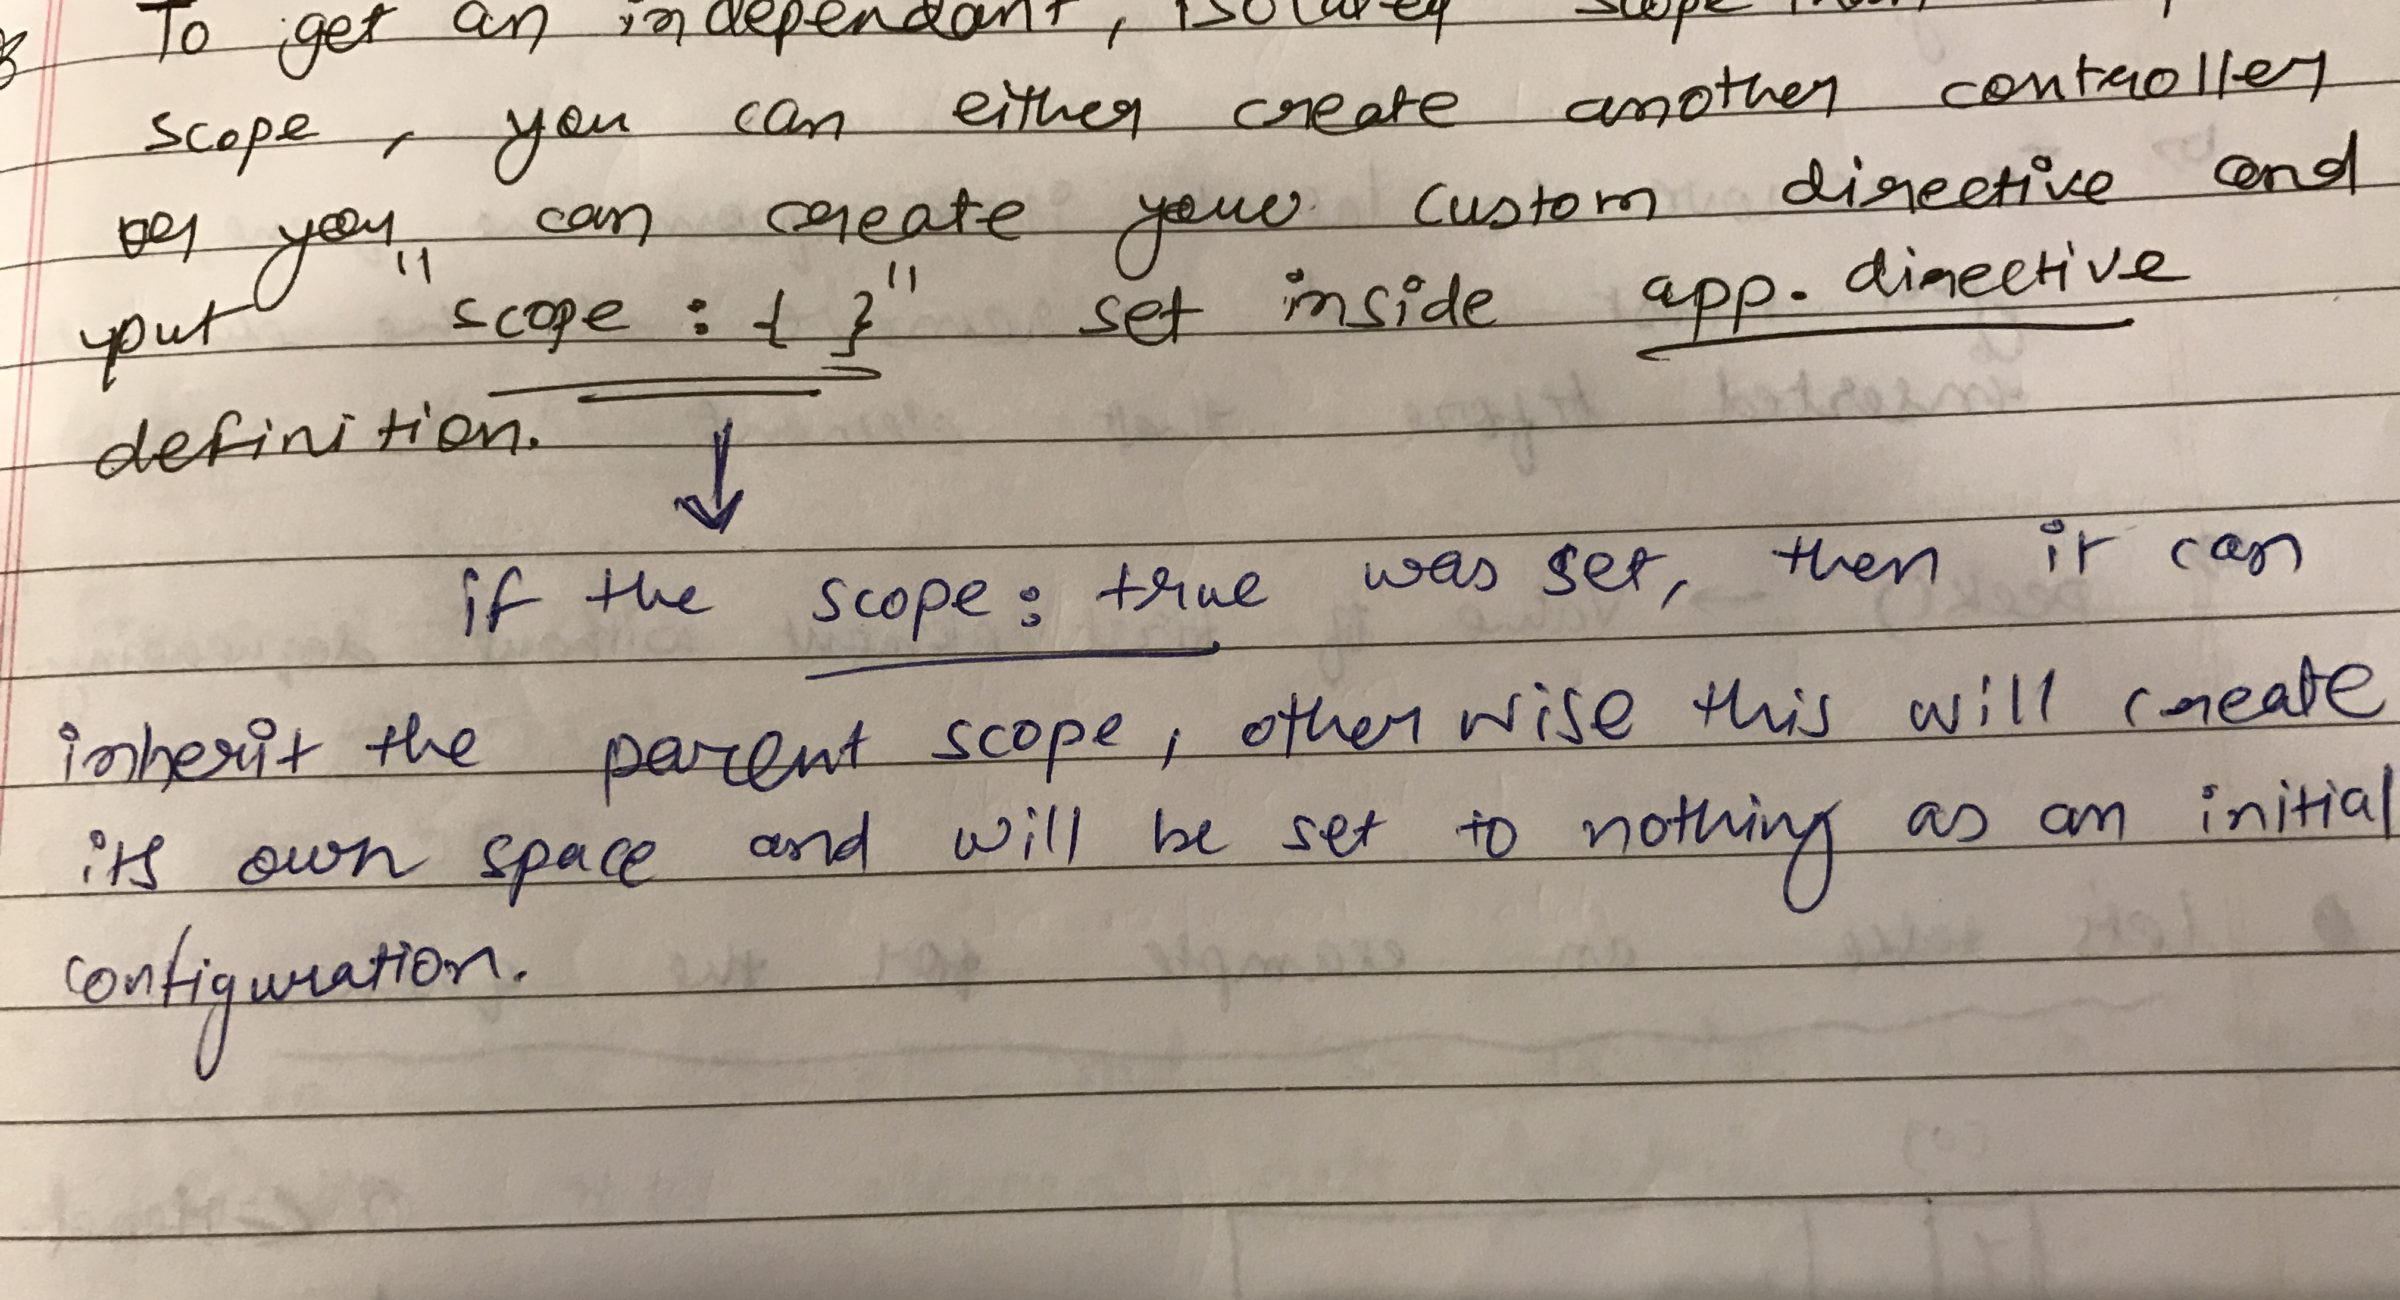 To get an independant, isolated scope than
scope, you can either create another controller
or you can create your custom directive and
put "scope : { }" set inside app. directive
definition.
if the scope: true was set, then it can
inherit the parent scope, otherwise this will create
its own space and will be set to nothing as an initial
configuration.